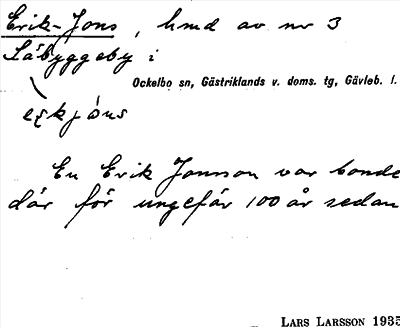 Erik-Jons, hmd av nr 3
Såbyggeby i
Ockelbo sn, Gästriklands v. doms. tg, Gävleb. l.
En Erik Jonson var bonde
där för ungefär 100 år sedan
LARS LARSSON 1935